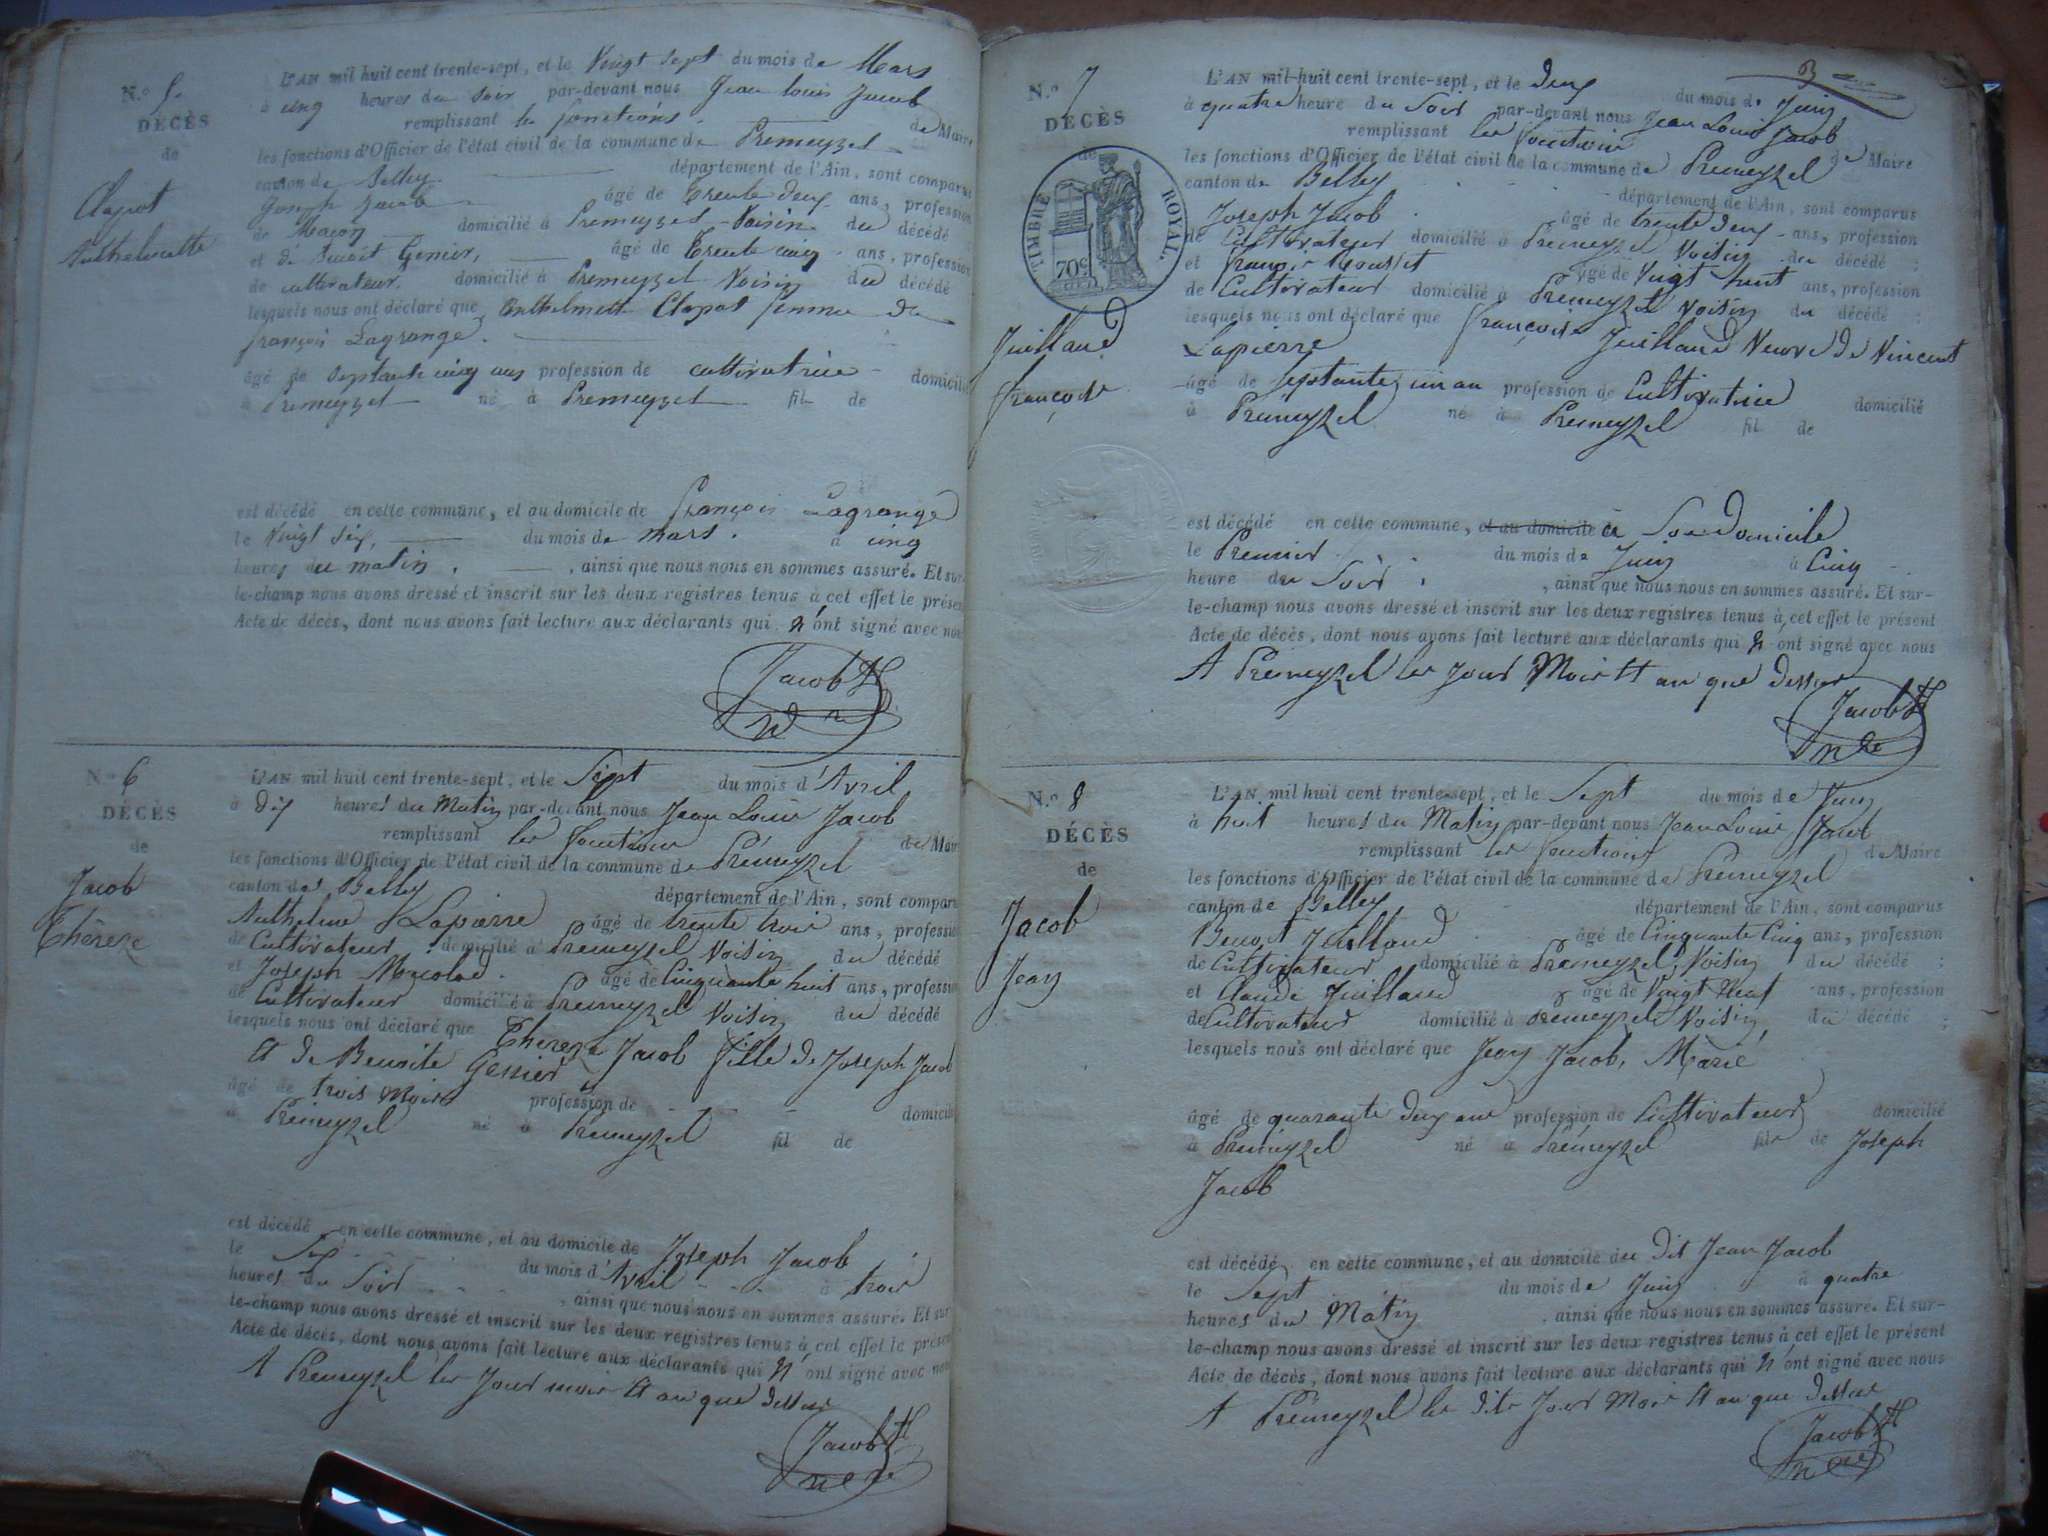 N.o 5.
DÉCÈS
de
Clapot
Anthelmette
L'AN mil huit cent trente-sept, et le Vingt sept du mois de Mars
à cinq heures du soir par-devant nous Jean Louis Jacob
remplissant les fonctions de Maire
les fonctions d'Officier de l'état civil de la commune de Premeyzel
canton de Belley département de l'Ain, sont comparus
Joseph Jacob âgé de Trente deux ans, profession
de Maçon domicilié à Premeyzel Voisin du décédé ;
et de Benoit Genier, âgé de Trente cinq ans, profession
de cultivateur, domicilié à Premeyzel Voisin du décédé
lesquels nous ont déclaré que Anthelmette Clapot femme de
françois Lagrange.
âgé de Septante cinq ans profession de cultivatrice domicilié
à Premeyzel né à Premeyzel fil de
est décédé en cette commune, et au domicile de François Lagrange
le Vingt six, du mois de Mars. à cinq
heures du matin, , ainsi que nous nous en sommes assuré. Et sur-
le-champ nous avons dressé et inscrit sur les deux registres tenus à cet effet le présent
Acte de décès, dont nous avons fait lecture aux déclarants qui n'ont signé avec nous
Jacob
N.o 6
DÉCÈS
de
Jacob
Thèreze
L'AN mil huit cent trente-sept, et le Sept du mois d'Avril
à dix heures du Matin par-devant nous Jean Louis Jacob
remplissant les fonctions de Maire
les fonctions d'Officier de l'état civil de la commune de Prémeyzel
canton de Belley département de l'Ain, sont comparus
Anthelme Lapierre âgé de trente trois ans, profession
de Cultivateur domicilié à Premeyzel Voisin du décédé
et Joseph âgé de Cinquante huit ans, profession
de Cultivateur domicilié à Premeyzel Voisin du décédé
lesquels nous ont déclaré que Thèreze Jacob fille de Joseph Jacob
Et de Benoite Genier
âgé de trois Mois profession de domicilié
à Prémeyzel né à Prémeyzel fil de
est décédé en cette commune, et au domicile de Joseph Jacob
le Six du mois d'Avril à trois
heures du Soir , ainsi que nous nous en sommes assuré. Et sur-
le-champ nous avons dressé et inscrit sur les deux registres tenus à cet effet le présent
Acte de décès, dont nous avons fait lecture aux déclarants qui n'ont signé avec nous
A Premeyzel les Jour mois Et an que dessus
Jacob
3
N.o 7
DÉCÈS
de
TIMBRE ROYAL.
70c
Juilland
françoise
L'AN mil huit cent trente-sept, et le deux du mois de Juin
à quatre heure du Soir par-devant nous Jean Louis Jacob
remplissant les fonctions de Maire
les fonctions d'Officier de l'état civil de la commune de Premeyzel
canton de Belley département de l'Ain, sont comparus
Joseph Jacob âgé de trente deux ans, profession
de Cultivateur domicilié à Premeyzel Voisin du décédé ;
et françois Rousset âgé de Vingt huit ans, profession
de Cultivateur domicilié à Premeyzel Voisin du décédé ;
lesquels nous ont déclaré que françoise Juilland Veuve de Vincent
Lapierre
âgé de Septante un an profession de Cultivatrice domicilié
à Prémeyzel né à Premeyzel fil de
est décédé en cette commune, et au domicile à Son Domicile
le Premier du mois de Juin à Cinq
heure du Soir , ainsi que nous nous en sommes assuré. Et sur-
le-champ nous avons dressé et inscrit sur les deux registres tenus à cet effet le présent
Acte de décès, dont nous avons fait lecture aux déclarants qui n'ont signé avec nous
A Premeyzel les Jour Mois Et an que dessus
Jacob
N.o 8
DÉCÈS
de
Jacob
Jean
L'AN mil huit cent trente-sept, et le Sept du mois de Juin
à huit heures du Matin par-devant nous Jean Louis Jacob
remplissant les fonctions de Maire
les fonctions d'Officier de l'état civil de la commune de Prémeyzel
canton de Belley département de l'Ain, sont comparus
Benoit Juilland âgé de Cinquante Cinq ans, profession
de Cultivateur domicilié à Premeyzel Voisin du décédé ;
et Claude Juilland âgé de Vingt Neuf ans, profession
de Cultivateur domicilié à Prémeyzel Voisin du décédé ;
lesquels nous ont déclaré que Jean Jacob, Marié
âgé de quarante deux ans profession de Cultivateur domicilié
à Prémeyzel né à Prémeyzel fils de Joseph
Jacob
est décédé en cette commune, et au domicile du dit Jean Jacob
le Sept du mois de Juin à quatre
heures du Matin , ainsi que nous nous en sommes assuré. Et sur-
le-champ nous avons dressé et inscrit sur les deux registres tenus à cet effet le présent
Acte de décès, dont nous avons fait lecture aux déclarants qui n'ont signé avec nous
A Prémeyzel les dits Jour Mois Et an que dessus
Jacob